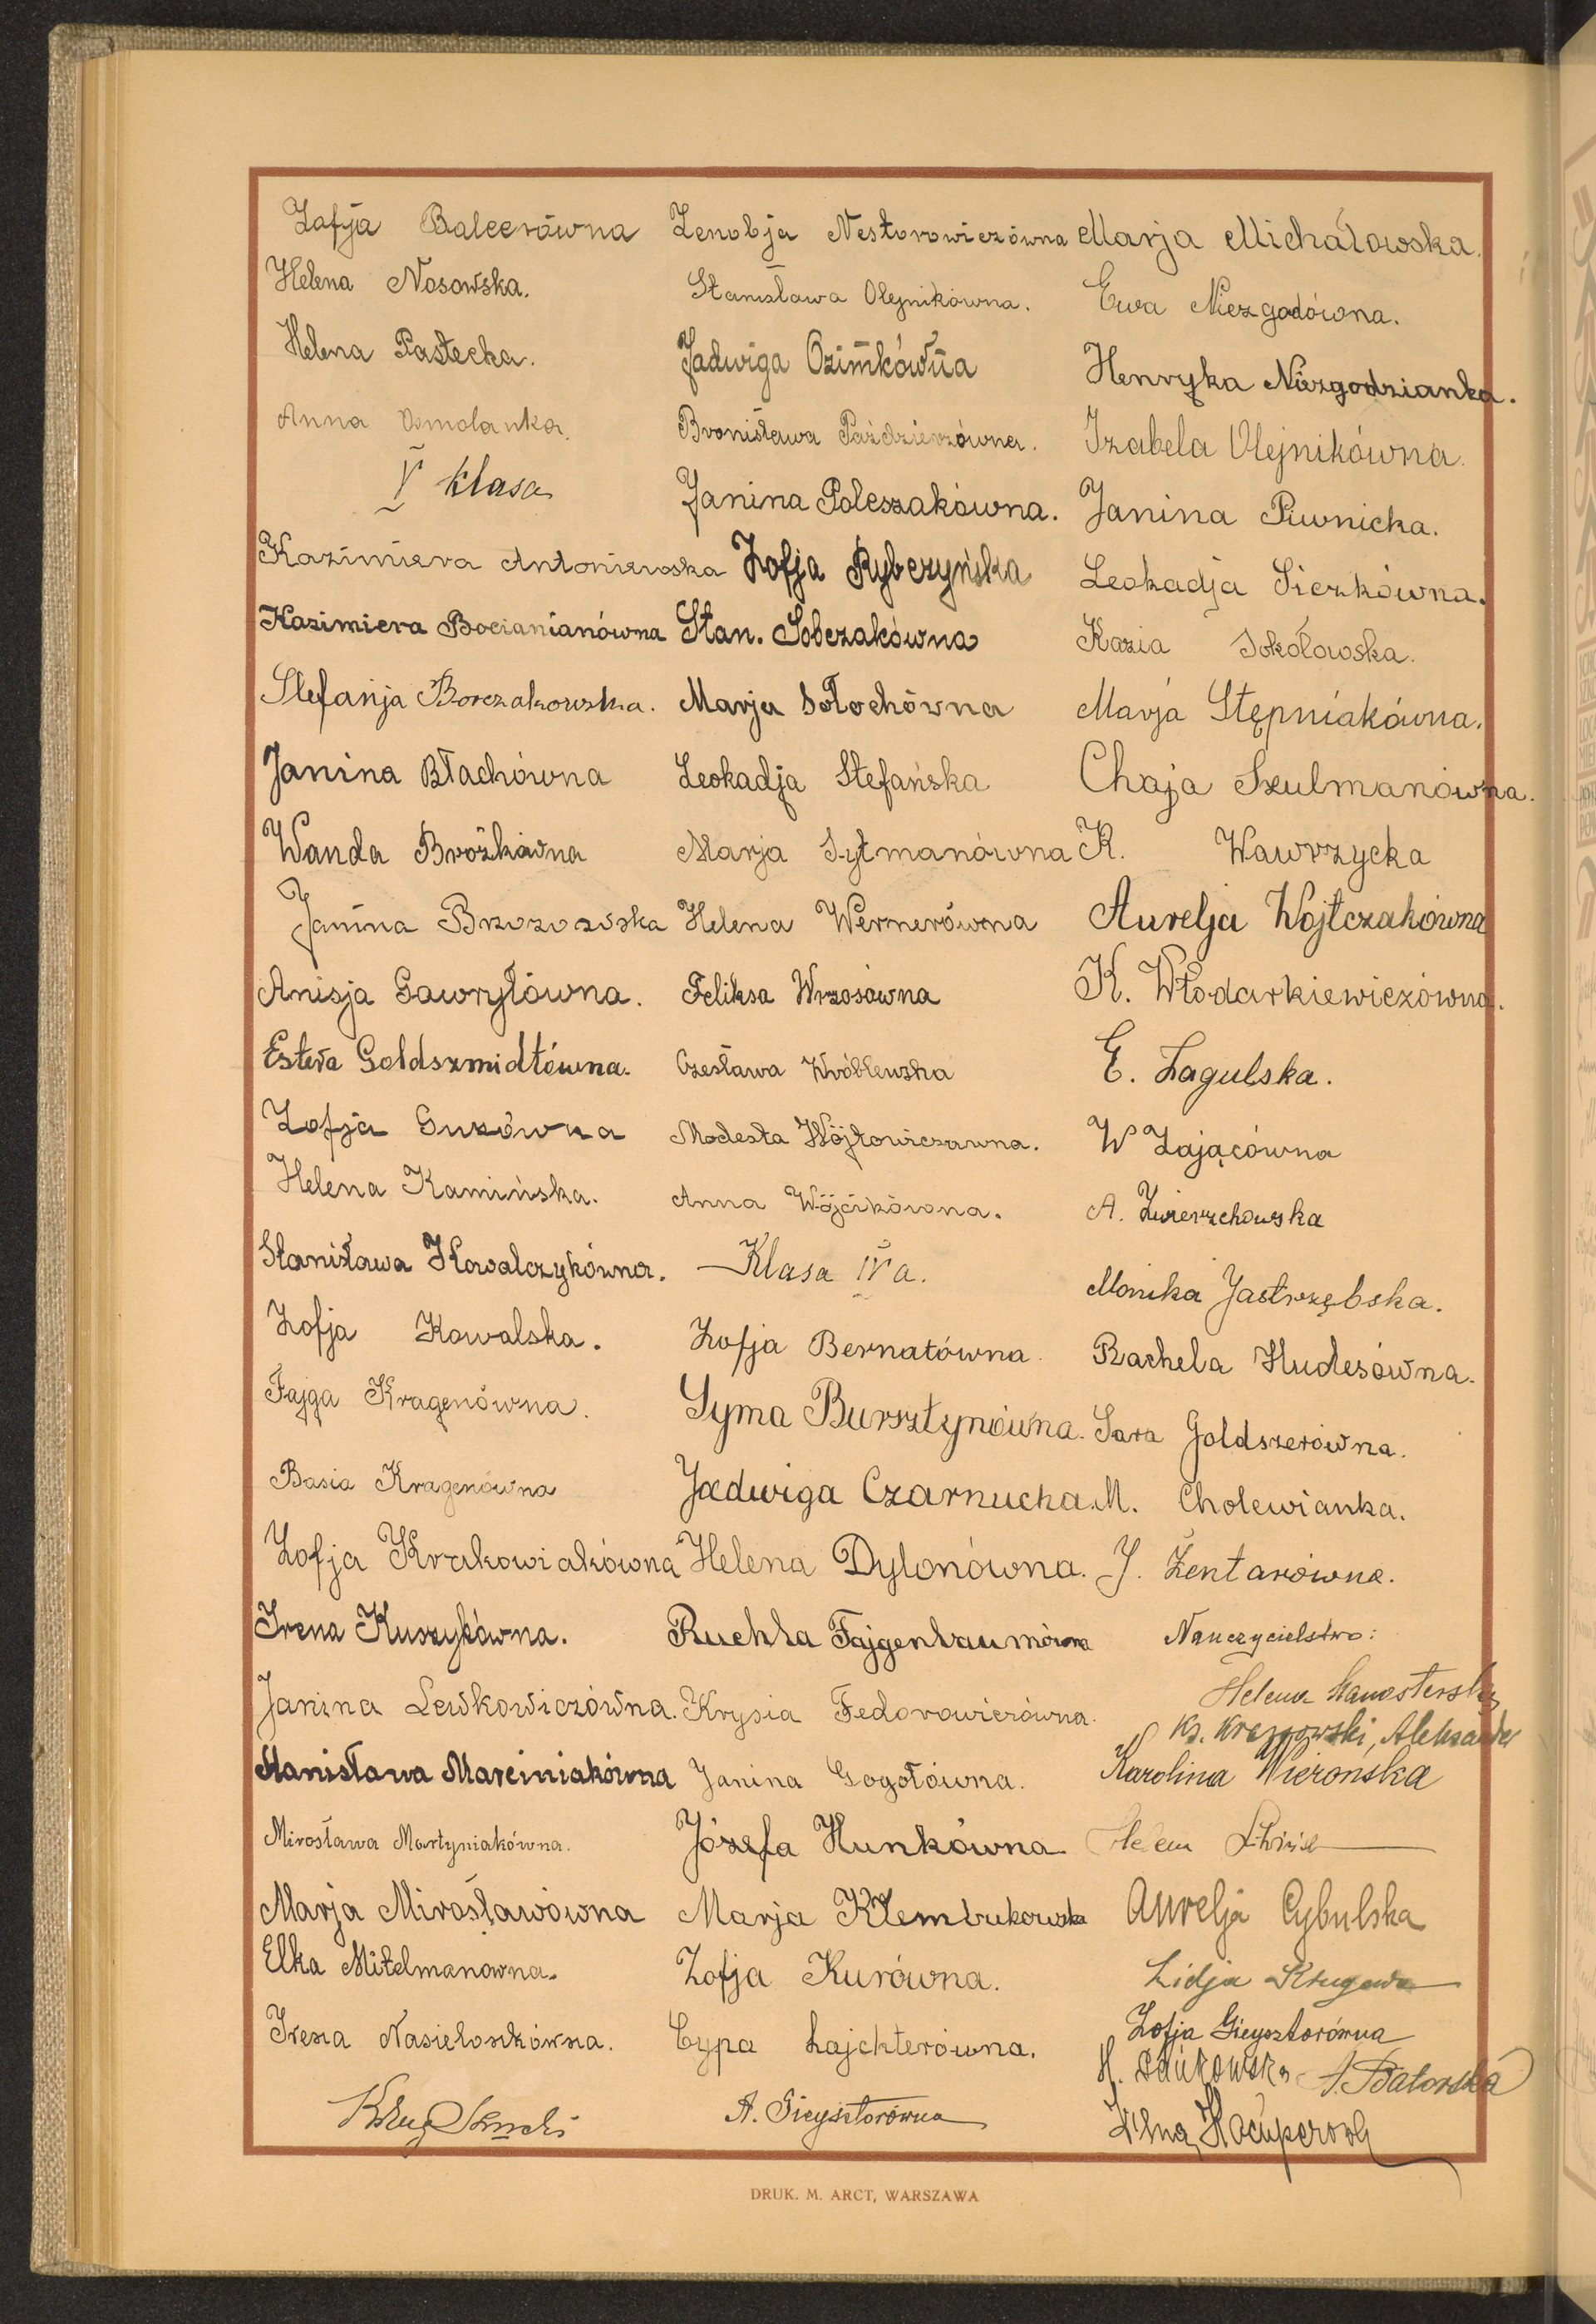 Zofja Balcerówna
Helena Nosowska.
Helena Pastecka.
Anna Osmolanka.
V klasa
Kazimiera Antoniewska
Kazimiera Bocianianówna
Stefanja Borczakowska.
Janina Błachówna
Wanda Brożkówna
Janina Brzozowska
Anisja Gawryłówna.
Estera Goldszmidtówna.
Zofja Guzówna
Helena Kamińska.
Stanisława Kowalczykówna.
Zofja Kowalska.
Fajga Kragenówna.
Basia Kragenówna
Zofja Krakowiakówna
Irena Kuszykówna.
Janina Lewkowiczówna.
Stanisława Marciniakówna
Mirosława Martyniakówna.
Marja Mirosławówna
Elka Mitelmanówna.
Irena
Zenobja Nestorowiczówna
Stanisława Olejnikówna.
Jadwiga Ozimkówna
Bronisława Paździerzówna.
Janina Poleszakówna.
Zofja Rybczyńska
Stan. Sobczakówna
Marja Sołochówna
Leokadja Stefańska
Marja Sytmanówna
Helena Wernerówna
Feliksa Wrzosówna
Czesława Wróblewska
Modesta Wójtowiczawna.
Anna Wójcikówna.
Klasa IV a.
Zofja Bernatówna.
Syma Bursztynówna.
Jadwiga Czarnucha
Helena Dylonówna.
Ruchla Fajgenbaumówna
Krysia Fedorowiczówna.
Janina Gogołówna.
Józefa Hunkówna
Marja Klembukowska
Zofja Kurówna.
Cypa Lajchterówna.
A. Gieysztorówna
Marja Michałowska.
Ewa Niezgodówna.
Henryka Niezgodzianka.
Izabela Olejnikówna.
Janina Piwnicka.
Leokadja Sieczkówna.
Kazia Sokołowska.
Marja Stępniakówna.
Chaja Szulmanówna.
K. Wawrzycka
Aurelja Wojtczakówna
K. Włodarkiewiczówna.
E. Zagulska.
W Zającówna
A. Zwierzchowska
Monika Jastrzębska.
Rachela Hudesówna.
Sara Goldszerówna.
M. Cholewianka.
J. Żentarówna.
Nauczycielstwo:
Helena
Ks. Aleksander
Karolina Wierońska
Helena
Aurelja Cybulska
Lidja
Zofja Gieysztorówna
H. A. Batorska
DRUK. M. ARCT, WARSZAWA